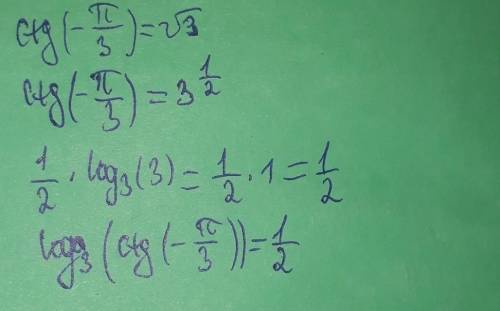 ctg(-π/3)=√3
ctg(-π/3)=3^(1/2)
1/2·log₃(3)=1/2·1=1/2
log₃(ctg(-π/3))=1/2